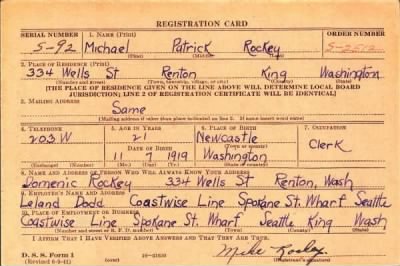 REGISTRATION CARD
SERIAL NUMBER 1. NAME (Print) ORDER NUMBER
S-92 Michael Patrick Rockey S-2512
(First) (Middle) (Last)
2. PLACE OF RESIDENCE (Print)
334 Wells St Renton King Washington
(Number and street) (Town, township, village, or city) (County) (State)
[THE PLACE OF RESIDENCE GIVEN ON THE LINE ABOVE WILL DETERMINE LOCAL BOARD
JURISDICTION; LINE 2 OF REGISTRATION CERTIFICATE WILL BE IDENTICAL]
3. MAILING ADDRESS
Same
[Mailing address if other than place indicated on line 2. If same insert word same]
4. TELEPHONE 5. AGE IN YEARS 6. PLACE OF BIRTH 7. OCCUPATION
203W 21 Newcastle
DATE OF BIRTH (Town or county)
11 7 1919 Washington Clerk
(Exchange) (Number) (Mo.) (Day) (Yr.) (State or country)
8. NAME AND ADDRESS OF PERSON WHO WILL ALWAYS KNOW YOUR ADDRESS
Domenic Rockey 334 Wells St Renton, Wash
9. EMPLOYER'S NAME AND ADDRESS
Leland Dodd Coastwise Line Spokane St. Wharf Seattle
10. PLACE OF EMPLOYMENT OR BUSINESS
Coastwise Line Spokane St. Wharf Seattle King Wash
(Number and street or R. F. D. number) (Town) (County) (State)
I AFFIRM THAT I HAVE VERIFIED ABOVE ANSWERS AND THAT THEY ARE TRUE.
D. S. S. Form 1
(Revised 6-9-41) Mike Rockey